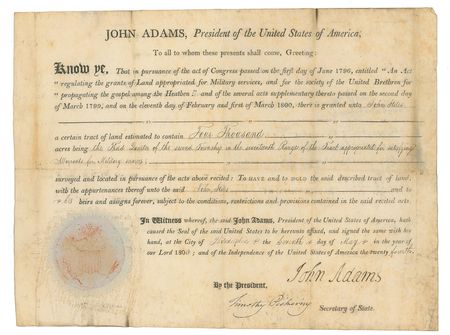 JOHN ADAMS, President of the United States of America,
To all to whom these presents shall come, Greeting:
Know ye, That in pursuance of the act of Congress passed on the first day of June 1796, entitled "An Act
"regulating the grants of Land appropriated for Military services, and for the society of the United Brethren for
"propagating the gospel among the Heathen;" and of the several acts supplementary thereto passed on the second day
of March 1799, and on the eleventh day of February and first of March 1800, there is granted unto John
a certain tract of land estimated to contain Four Thousand
acres being the Third Quarter of the second Township in the Range of the Tract appropriated for satisfying
Warrants for Military services
surveyed and located in pursuance of the acts above recited: To HAVE and to HOLD the said described tract of land,
with the appurtenances thereof unto the said John and to
his heirs and assigns forever, subject to the conditions, restrictions and provisions contained in the said recited acts.
In Witness whereof, the said JOHN ADAMS, President of the United States of America, hath
caused the Seal of the said United States to be hereunto affixed, and signed the same with
his hand, at the City of Philadelphia the day of May in the year of
our Lord 1800; and of the Independence of the United States of America the twenty fourth.
John Adams
By the President,
Timothy Pickering Secretary of State.